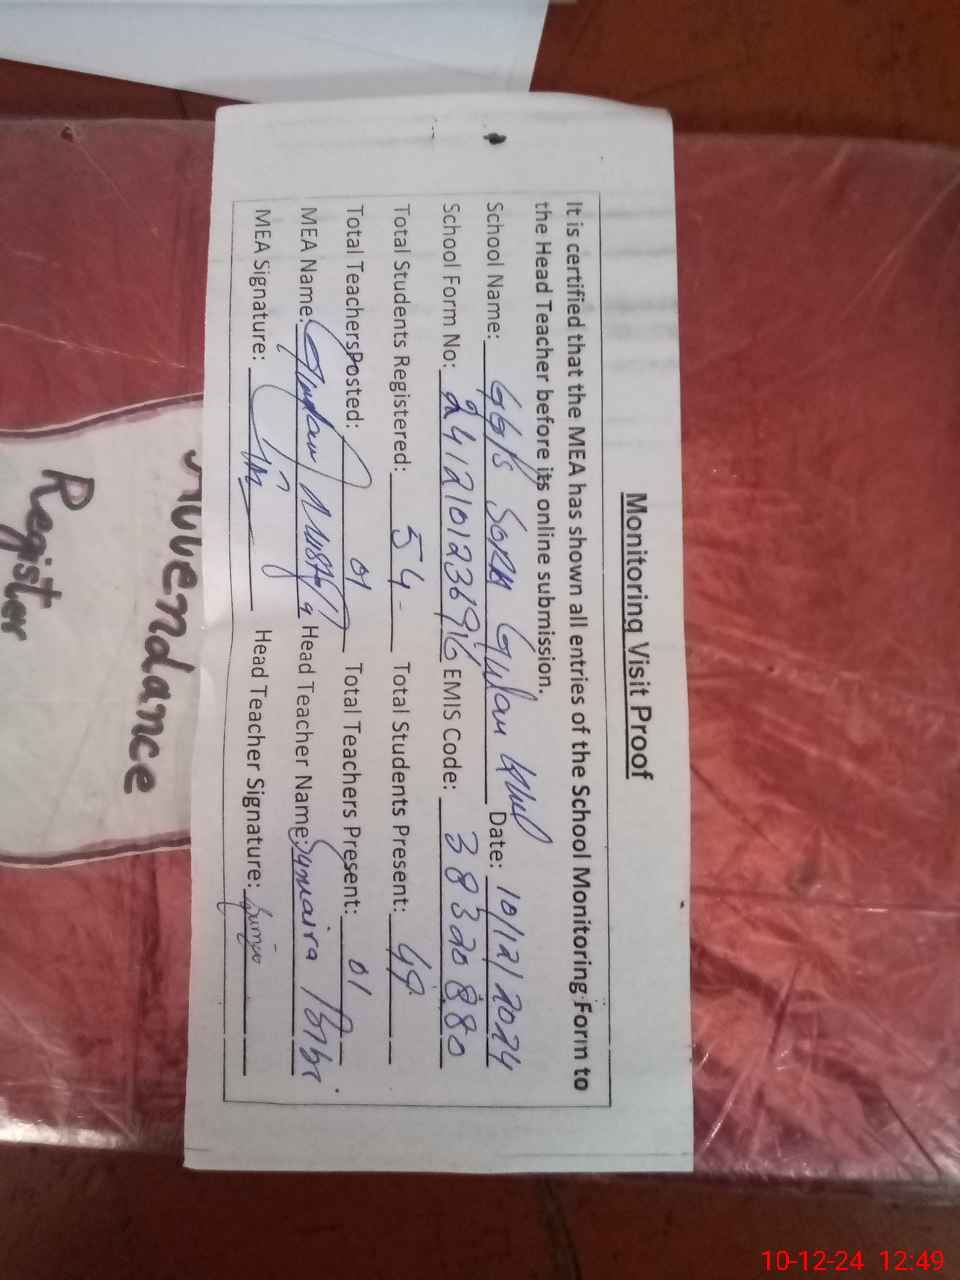 Monitoring Visit Proof
It is certified that the MEA has shown all entries of the School Monitoring Form to
the Head Teacher before its online submission.
School Name: GGPS Date: 10/12/2024
School Form No: EMIS Code: 38320880
Total Students Registered: 54 Total Students Present: 49
Total Teachers Posted: 01 Total Teachers Present: 01
MEA Name: Mustafa Head Teacher Name: Sumaira Bibi
MEA Signature: Head Teacher Signature:
Attendance
Register
10-12-24 12:49